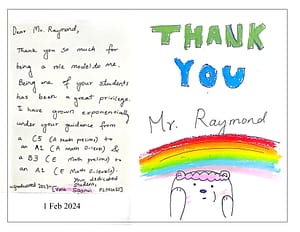 Dear Mr. Raymond,
Thank you so much for
being a role model to me.
Being one of your students
has been a great privilege.
I have grown exponentially
under your guidance from
a C5 (A Math prelims) to
an A1 (A Math O-level) &
a B3 (E Math prelims) to
an A1 (E Math O-levels).
Your dedicated
student,
1 Feb 2024
THANK
YOU
Mr. Raymond